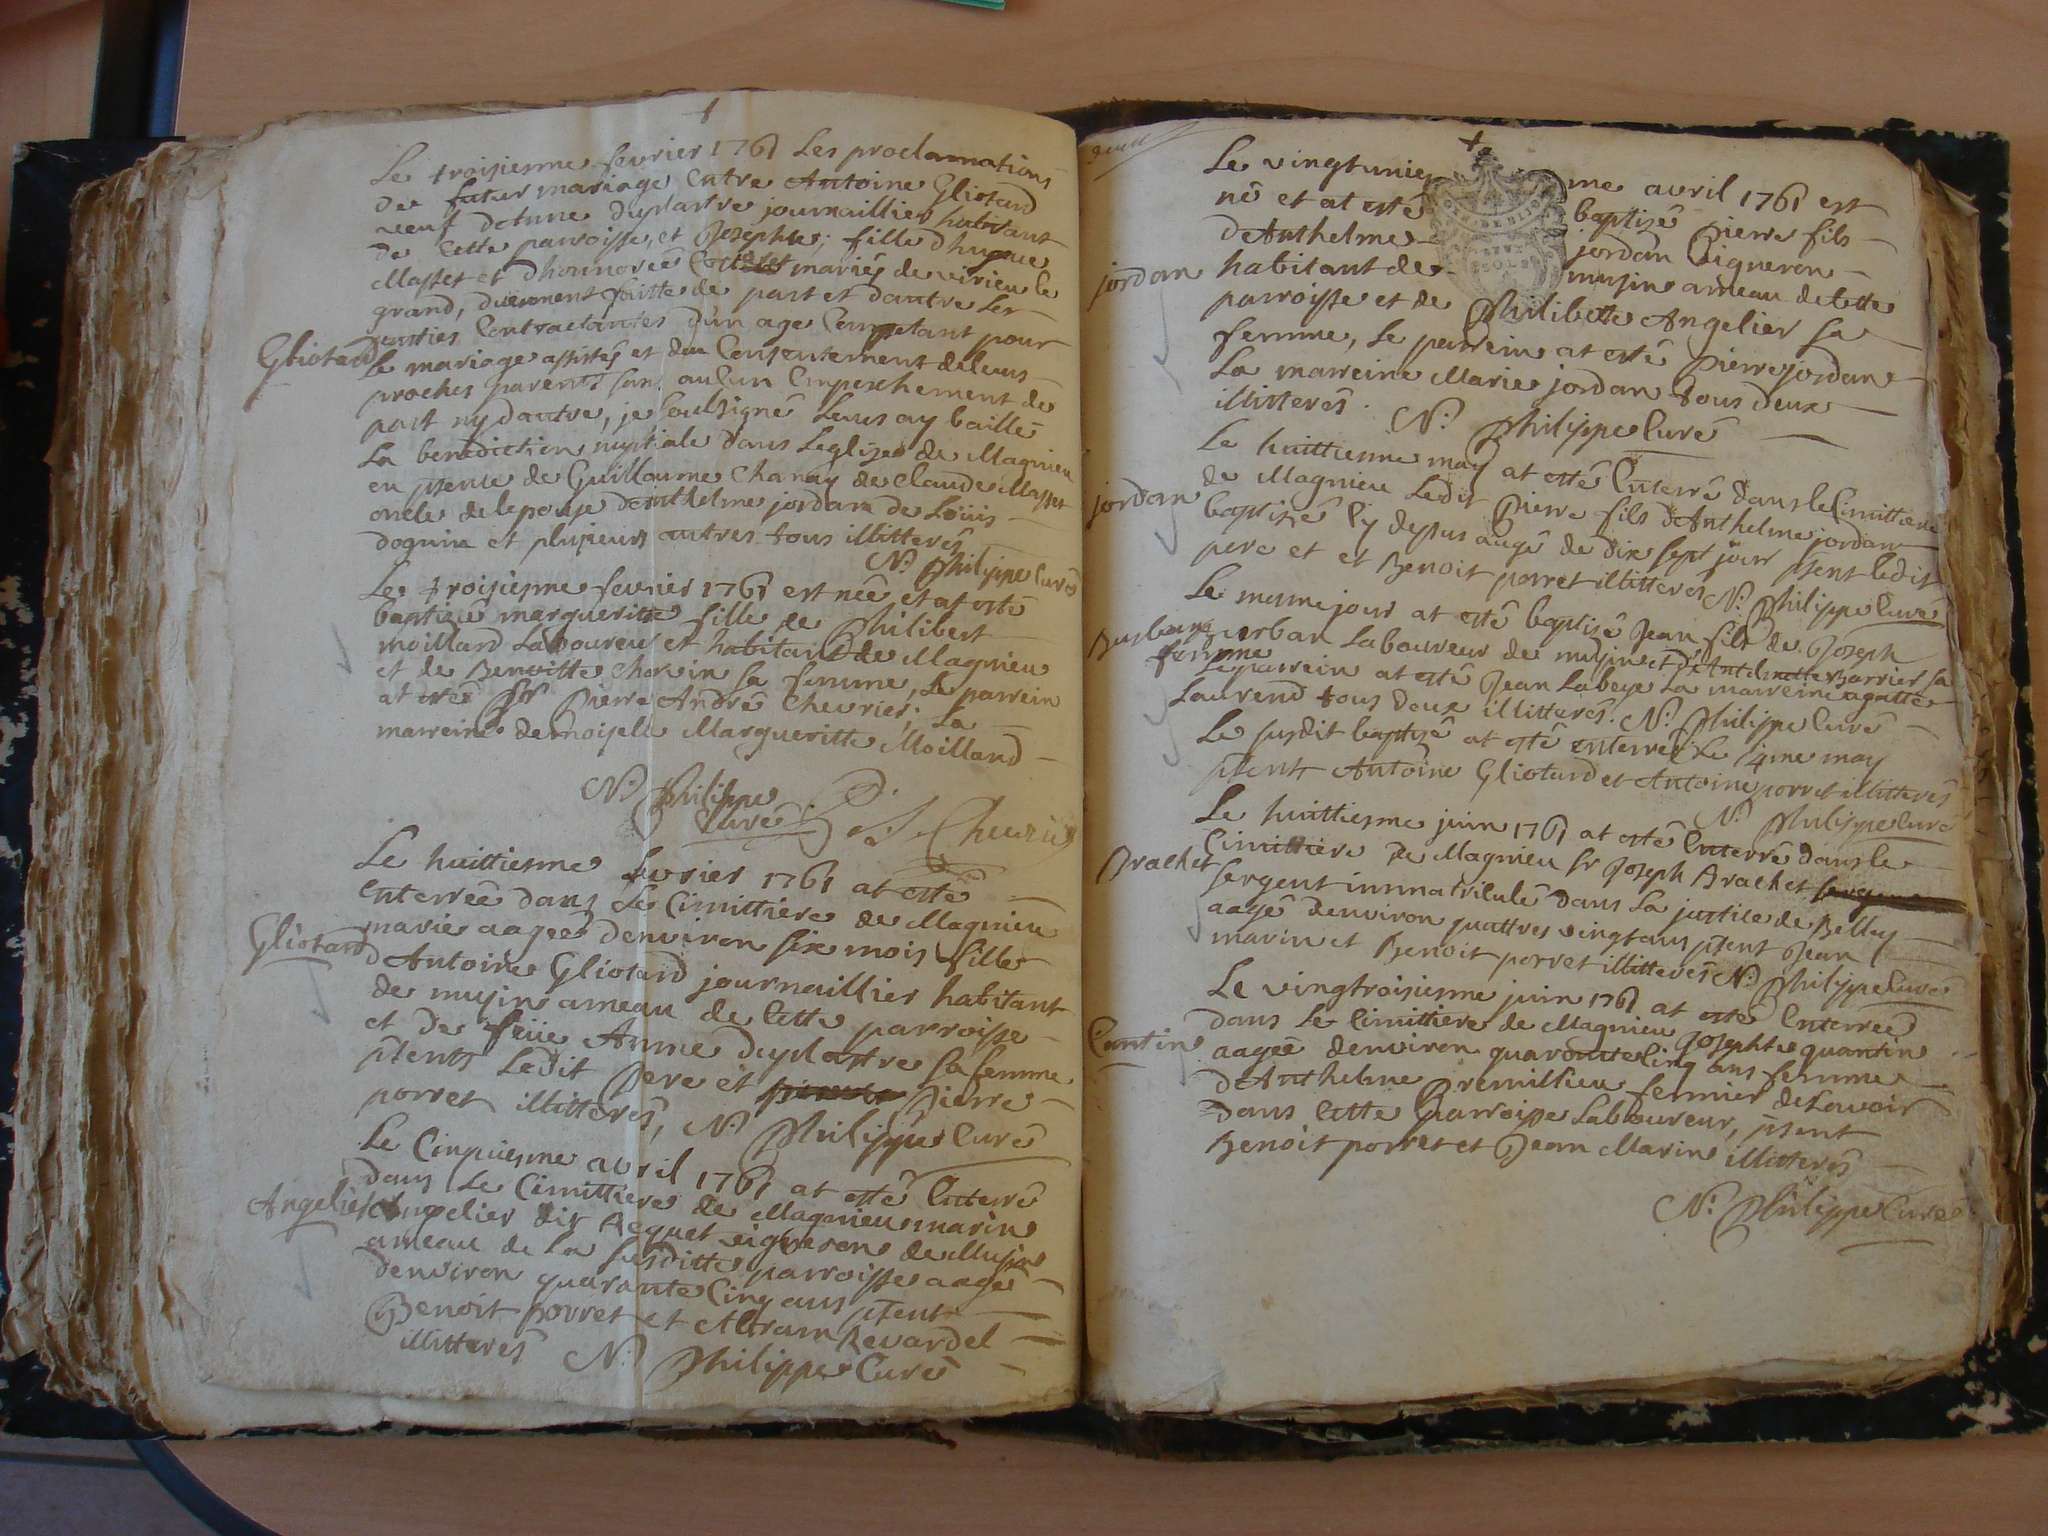 Le troisiesme fevrier 1761 Les proclamations
de futur mariage entre Antoine Gliotard
veuf danne duplastre journaillier habitant
de cette parroisse, et Josephte, fille d'hugue
Masset et dhonnorée mariés de virieu le
grand, duement faitte de part et dautre Les
parties Contractantes dun age Competant pour
Gliotard
Le mariage assistés et du Consentement de leurs
proches parents sans aucun Empeschement de
part ny dautre, je soussigné Leurs ay baillé
La benediction nuptiale dans Leglize de Magnieu
en psence de Guillaume Chanay de Claude Masset
oncle de lepouse danthelme jordan de Loüis
dognin et plusieurs autres tous illitterés
N. Philippe Curé
Le troisiesme fevrier 1761 est née et at esté
baptisée margueritte fille de Philibert
moillard Laboureur et habitant de Magnieu
et de Benoitte Charvin sa femme, Le parrein
at esté Sr Pierre André Chevrier, La
marreine demoiselle Margueritte Moilland
N. Philippe
Curé
Chevrier
Le huittiesme fevrier 1761 at esté
Enterrée dans Le Cimittiere de Magnieu
marie aagée denviron six mois fille
Gliotard
d'Antoine Gliotard journaillier habitant
de musin ameau de Cette parroisse
et de feüe Anne duplastre sa femme
psents Ledit Pere et Pierre
porret illitterés, N. Philippe Curé
Le Cinquiesme avril 1761 at esté Enterré
dans Le Cimittiere de Magnieu marin
Angelier
Angelier dit Reguet vigneron de Musin
ameau de La susditte parroisse aagé
denviron quarante Cinq ans psent
Benoit Porret et Abram Revardel
illitterés N. Philippe Curé
Le vingtuniesme avril 1761 est
né et at esté baptisé Pierre fils
d'Anthelme jordan Vigneron
jordan
habitant de musin ameau de Cette
parroisse et de Philiberte Angelier sa
femme, Le parrein at esté Pierre jordan
La marreine Marie jordan tous deux
illitterés. N. Philippe Curé
Le huittiesme may at esté Enterré dans le Cimittiere
jordan
de Magnieu Ledit Pierre fils d'Anthelme jordan
baptizé Cy dessus aagé de dix sept jour psent Ledit
pere et et Benoit porret illitterés N. Philippe Curé
Le mesme jour at esté baptisé Jean fils de Joseph
Laboureur de musin et d'Antelmette Barrier sa
femme
Le parrein at esté Jean Labeye La marreine agatte
Laurend tous deux illitterés. N. Philippe Curé
Le susdit baptisé at esté enterré Le 14me may
psents Antoine Gliotard et Antoine porret illitterés
N. Philippe Curé
Le huittiesme juin 1761 at esté Enterré dans le
Cimittiere de Magnieu Sr Joseph Brachet
Brachet
sergent immatriculé dans La justice de Belley
aagé denviron quattres vingt ans psent Jean
marin et Benoit porret illitterés N. Philippe Curé
Le vingtroisiesme juin 1761 at esté Enterrée
dans Le Cimittiere de Magnieu Josephte quantin
Cantin
aagée denviron quarante Cinq ans femme
d'Anthelme Premillieu fermier de Lavoir
dans Cette Parroisse Laboureur, psent
Benoit porret et Jean Marin illitterés
N. Philippe Curé